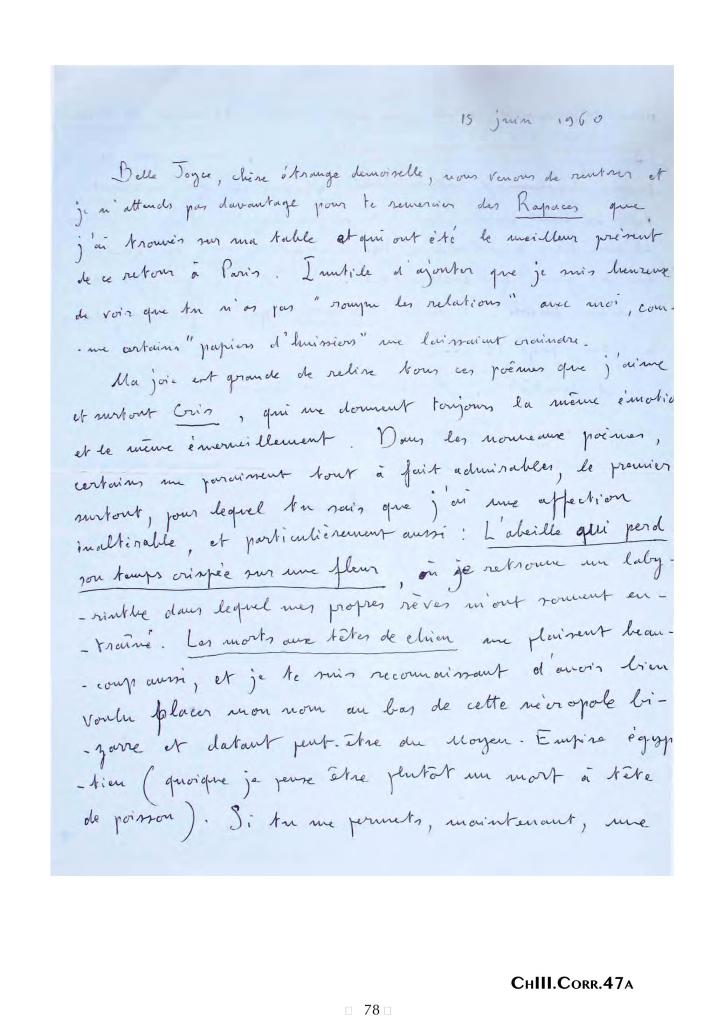 15 juin 1960
Belle Joyce, chère étrange demoiselle, nous venons de rentrer et
je n'attends pas davantage pour te remercier des Rapaces que
j'ai trouvés sur ma table et qui ont été le meilleur présent
de ce retour à Paris. Inutile d'ajouter que je suis heureux
de voir que tu n'as pas "rompu les relations" avec moi, com-
-me certains "papiers d'huissiers" me laissaient craindre.
Ma joie est grande de relire tous ces poèmes que j'aime
et surtout Cris, qui me donnent toujours la même émotio
et le même émerveillement. Dans les nouveaux poèmes,
certains me paraissent tout à fait admirables, le premier
surtout, pour lequel tu sais que j'ai une affection
inaltérable, et particulièrement aussi : L'abeille qui perd
son temps crispée sur une fleur, où je retrouve un laby-
-rinthe dans lequel mes propres rêves m'ont souvent en-
-traîné. Les morts aux têtes de chien me plaisent beau-
-coup aussi, et je te suis reconnaissant d'avoir bien
voulu placer mon nom au bas de cette nécropole bi-
-zarre et datant peut-être du Moyen-Empire égyp
-tien (quoique je pense être plutôt un mort à tête
de poisson). Si tu me permets, maintenant, une
CHIII.CORR.47A
78